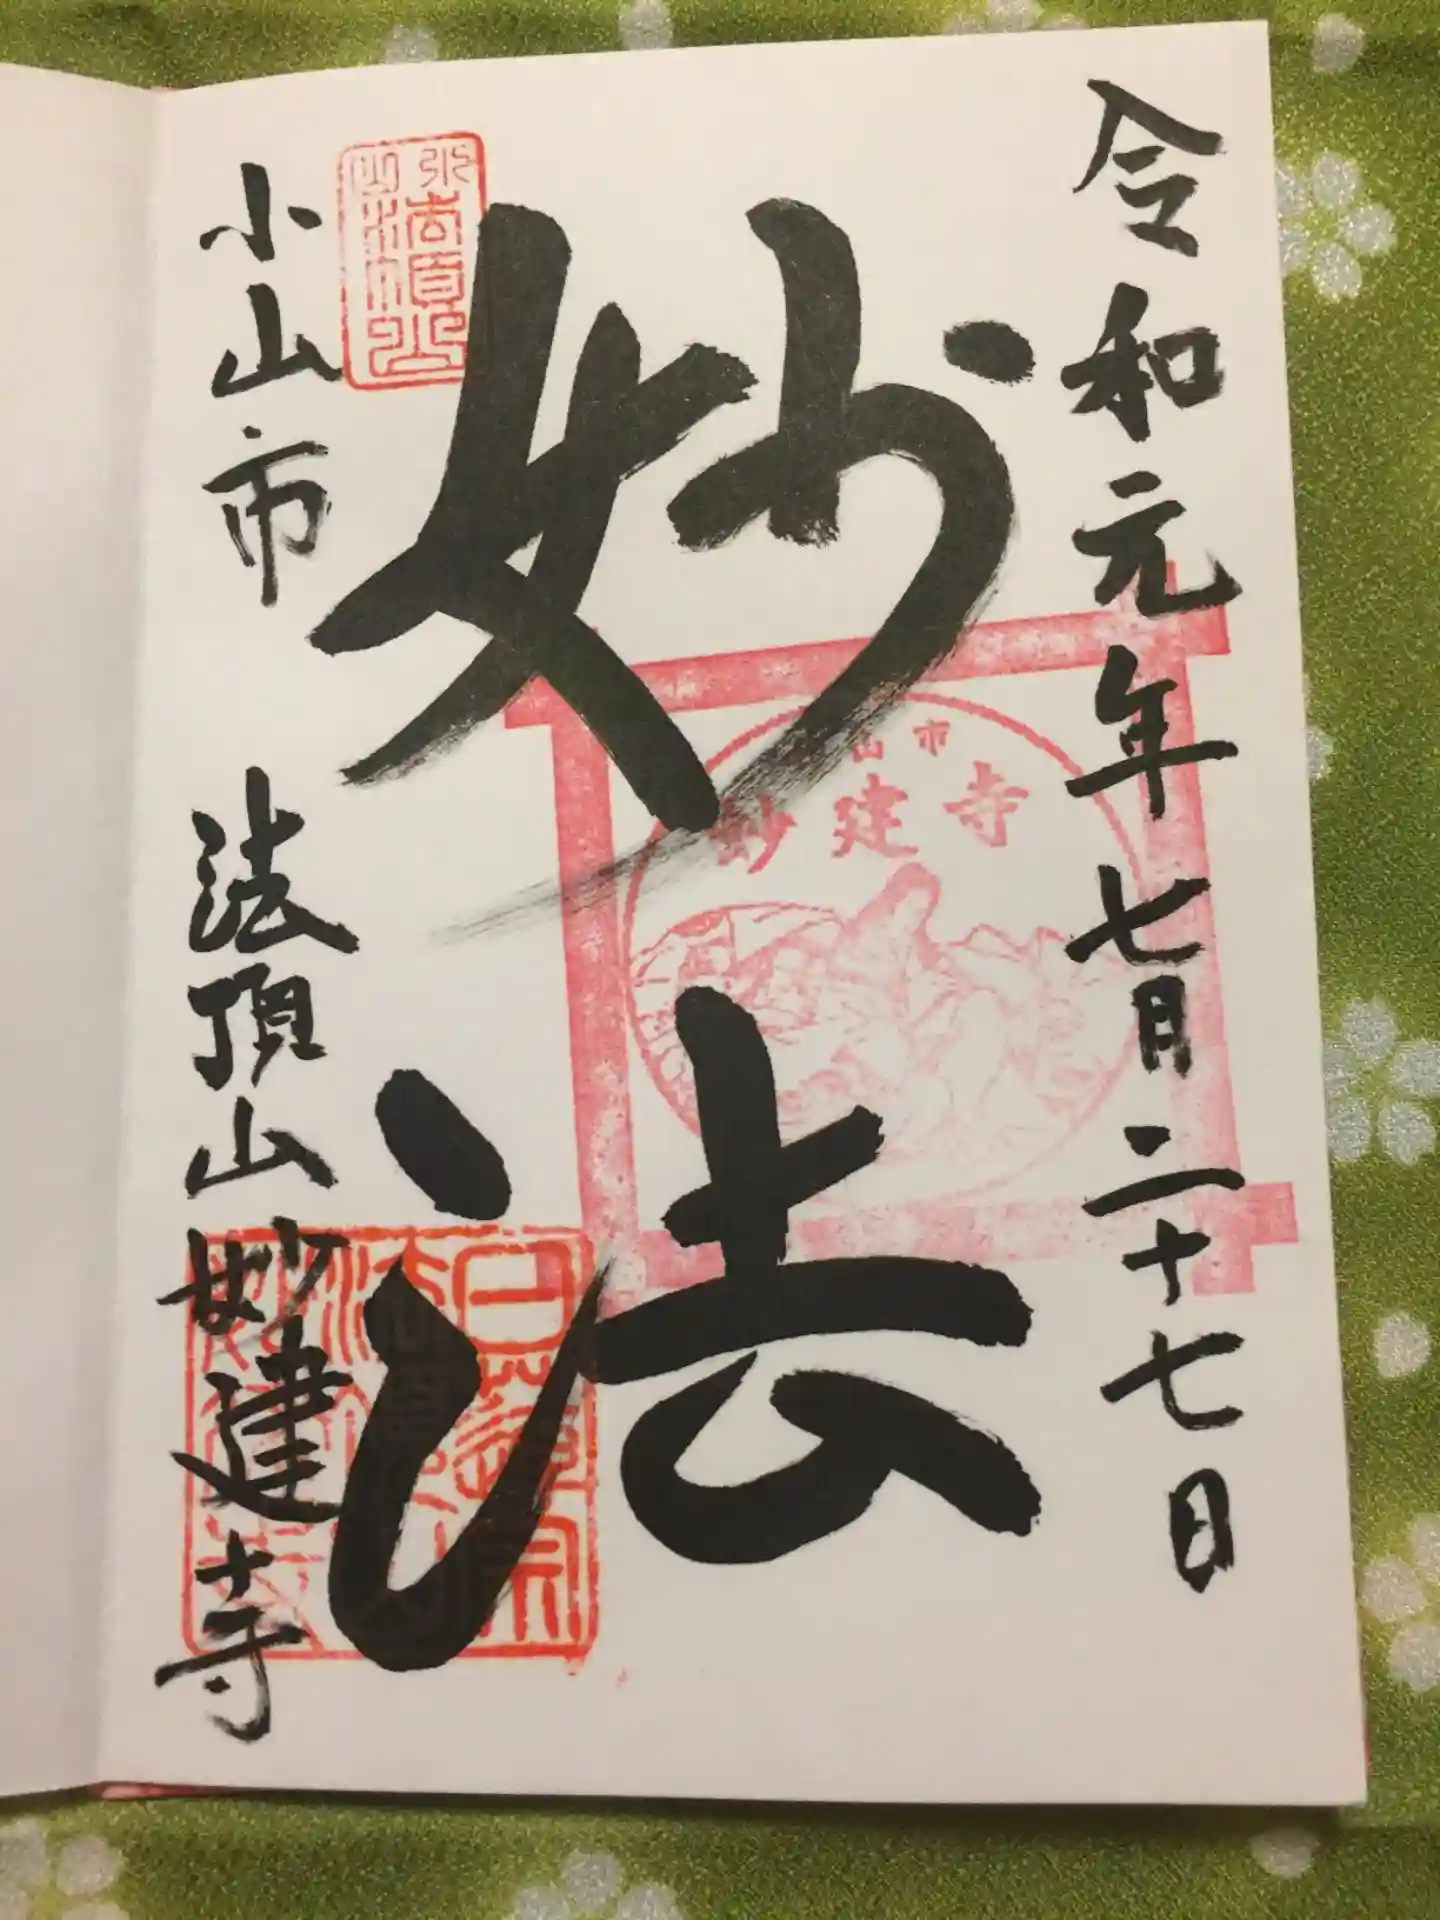 令和元年七月二十七日
妙法
小山市 法頂山妙建寺
山市
妙建寺